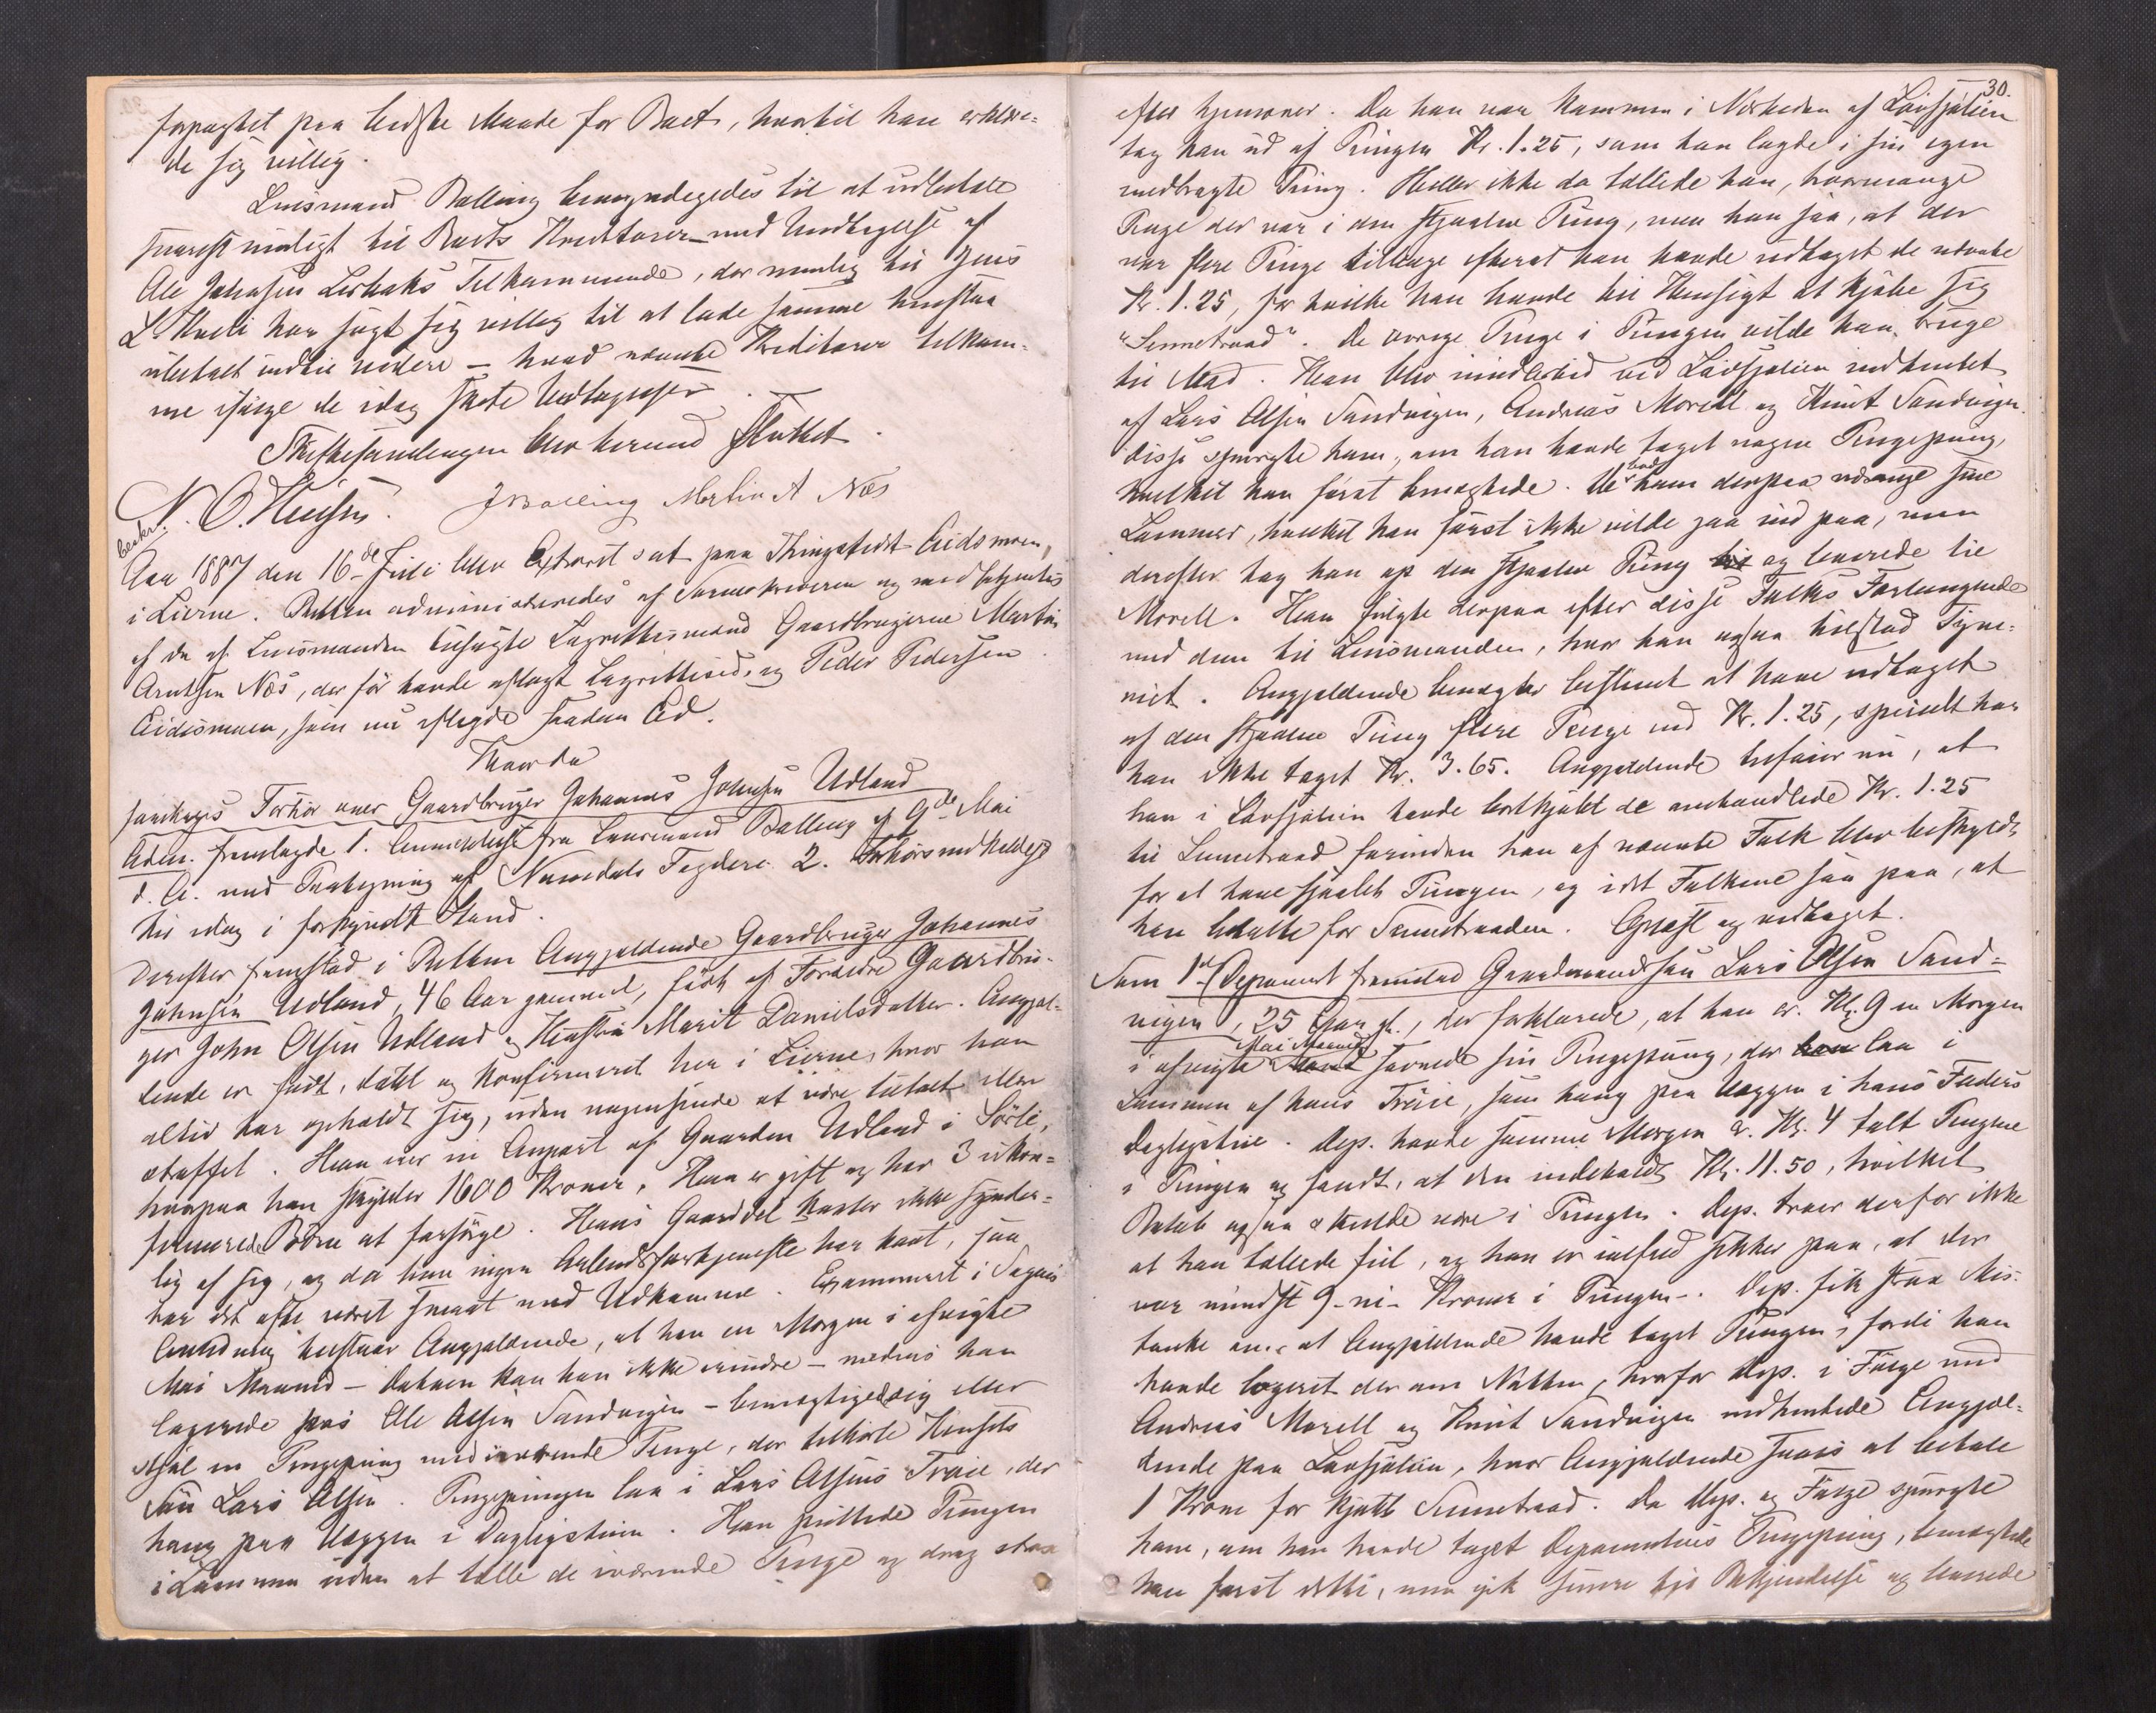 forpagtet paa bedste Maade for Boet, hvortil han erklære-
de sig villig.
Lensmand Balling bemyndigedes til at udbetale
snarest muligt til Boets Kreditorer med Undtagelse af
Ole Johnsen Lerbaks Tilkommende, der nemlig til Jens
L. Kveli har sagt sig villig til at lade samme henstaa
ubetalt indtil videre – hvad nævnte Kreditorer tilkom-
me ifølge de idag skete Udlægelser.
Skiftesamlingen blev hermed sluttet.
N. O. JBalling Martin A Næs
beskr.
Aar 1887 den 16de Juli blev Extraret sat paa Thingstedet Eidsmoen,
i Lierne. Retten administreredes af Sorenskriveren og medbetjentes
af de af Lensmanden tilsagte Lagrettesmænd Gaardbrugerne Martin
Arntsen Næs, der før havde aflagt Lagrettesed, og Peder Pedersen
Eidsmoen, som nu aflagde saadan Ed.
Hvorda
foretoges Forhør over Gaardbruger Johannes Johnsen Udland
Adm. fremlagde 1. Anmeldelse fra Lensmand Balling af 9de Mai
d. A. med Paategning af Namdals Fogderi 2. Forhørsindkaldelse
til idag i forkyndt Stand.
Derefter fremstod i Retten Angjældende Gaardbruger Johannes
Johnsen Udland, 46 Aar gammel, født af Forældre Gaardbru-
ger John Olsen Udland og Hustru Marit Danielsdatter. Angjæl-
dende er født, døbt og konfirmeret her i Lierne, hvor han
altid har opholdt sig, uden nogensinde at være tiltalt eller
straffet. Han eier en Anpart af Gaarden Udland i Sørli,
hvorpaa han skylder 1600 Kroner. Han er gift og har 3 ukon-
firmerede Børn at forsørge. Hans Gaarddel kaster ikke synder-
lig af sig, og da han ingen Arbeidsfortjeneste har havt, saa
har det ofte været smaat med Udkomme. Examineret i Sagens
Anledning tilstaar Angjældende, at han en Morgen i afvigte
Mai Maaned – Datoen kan han ikke erindre – medens han
logerede hos Ole Olsen Sandvigen – bemægtigede sig eller
stjal en Pengepung med iværende Penge, der tilhørte Hensets
Søn Lars Olsen. Pengepungen laa i Lars Olsens Trøie, der
hang paa Væggen i Dagligstuen. Han puttede Pungen
i Lommen uden at tælle de iværende Penge og drog strax
30.
efter hjemover. Da han var kommen i Nærheden af Løvsjølien
tog han ud af Pungen Kr. 1.25, som han lagde i sin egen
medbragte Pung. Heller ikke da tællede han, hvormange
Penge der var i den stjaalne Pung, men han saa, at der
var flere Penge tilbage efterat han havde udtaget de nævnte
Kr. 1.25, for hvilke han havde til Hensigt at kjøbe sig
"Sennetraad". De øvrige Penge i Pungen vilde han bruge
til Mad. Han blev imidlertid ved Løvsjølien indhentet
af Lars Olsen Sandvigen, Andreas Morell og Knut Sandvigen.
disse spurgte ham, om han havde taget nogen Pengepung,
hvilket han først benægtede. De bad ham derpaa udrænge sine
Lommer, hvilket han først ikke vilde gaa ind paa, men
derefter tog han op den stjaalne Pung og leverede til
Morell. Han fulgte derpaa efter disse Folks Forlangende
med dem til Lensmanden, hvor han ogsaa tilstod Tyve-
riet. Angjældende benægter bestemt at have udtaget
af den stjaalne Pung flere Penge end Kr. 1.25, specielt har
han ikke taget Kr. 3.65. Angjældende tilføier nu, at
han i Løvsjølien havde bortkjøbt de omhandlede Kr. 1.25
til Sennetraad forinden han af nævnte Folk blev beskyldt
for at have stjaalet Pungen, og idet Folkene saa paa, at
han betalte for Sennetraaden. Oplæst og vedtaget.
Som 1ste Deponent fremstod Gaardmandssøn Lars Olsen Sand-
vigen, 25 Aar gl., der forklarede, at han cr. Kl. 9 en Morgen
i afvigte Mai Maaned savnede sin Pengepung, der laa i
Lommen af hans Trøie, som hang paa Væggen i hans Faders
Dagligstue. Dep. havde samme Morgen cr. Kl. 4 talt Pengene
i Pungen og fandt, at den indeholdt Kr. 11.50, hvilket
Beløb ogsaa skulde være i Pungen. Dep. troer derfor ikke
at han tællede feil, og han er ialfald sikker paa, at der
var mindst 9 – ni – Kroner i Pungen –. Dep. fik strax Mis-
tanke om, at Angjældende havde taget Pungen, fordi han
havde logeret der om Natten, hvorfor Dep. i Følge med
Andreas Morell og Knut Sandvigen indhentede Angjæl-
dende paa Løvsjølien, hvor Angjældende saaes at betale
1 Krone for kjøbt Sennetraad. Da Dep. og Følge spurgte
ham, om han havde taget Deponentens Pengepung, benægtede
han først dette, men gik senere til Bekjendelse og leverede